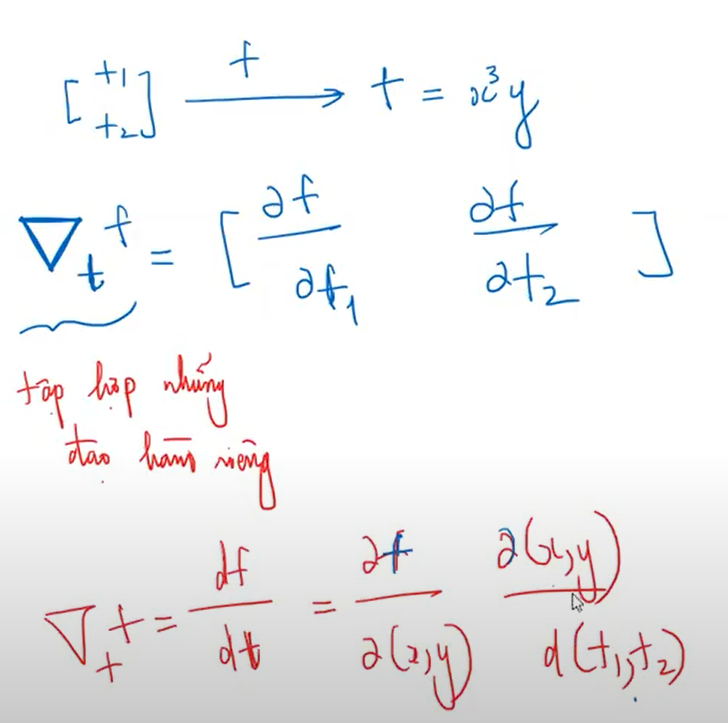 [t1 t2] f → t = x³y
∇t f = [ ∂f/∂t1 ∂f/∂t2 ]
tập hợp những
đạo hàm riêng
∇t t = df/dt = ∂f/∂(x,y) ∂(x,y)/d(t1,t2)